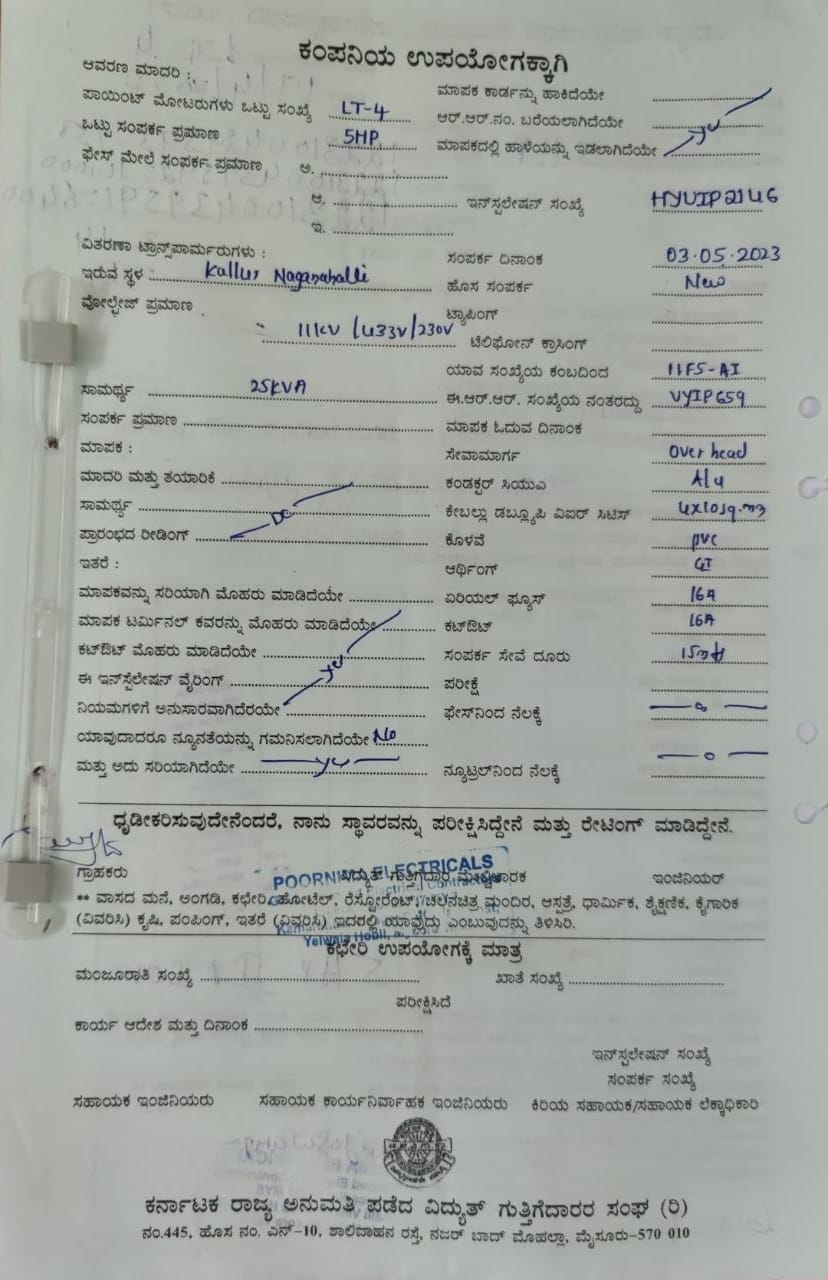 ಕಂಪನಿಯ ಉಪಯೋಗಕ್ಕಾಗಿ
ಆವರಣ ಮಾದರಿ :
ಪಾಯಿಂಟ್ ಮೋಟರುಗಳು ಒಟ್ಟು ಸಂಖ್ಯೆ LT-4
ಒಟ್ಟು ಸಂಪರ್ಕ ಪ್ರಮಾಣ 5HP
ಫೇಸ್ ಮೇಲೆ ಸಂಪರ್ಕ ಪ್ರಮಾಣ ಅ.
ಆ.
ಇ.
ವಿತರಣಾ ಟ್ರಾನ್ಸ್‌ಪಾರ್ಮರುಗಳು :
ಇರುವ ಸ್ಥಳ Kallur Naganahalli
ವೋಲ್ಟೇಜ್ ಪ್ರಮಾಣ
11kV /433V/230V
ಸಾಮರ್ಥ್ಯ 25KVA
ಸಂಪರ್ಕ ಪ್ರಮಾಣ
ಮಾಪಕ :
ಮಾದರಿ ಮತ್ತು ತಯಾರಿಕೆ
ಸಾಮರ್ಥ್ಯ
ಪ್ರಾರಂಭದ ರೀಡಿಂಗ್
ಇತರೆ :
ಮಾಪಕವನ್ನು ಸರಿಯಾಗಿ ಮೊಹರು ಮಾಡಿದೆಯೇ
ಮಾಪಕ ಟರ್ಮಿನಲ್ ಕವರನ್ನು ಮೊಹರು ಮಾಡಿದೆಯೇ
ಕಟ್‌ಔಟ್ ಮೊಹರು ಮಾಡಿದೆಯೇ
ಈ ಇನ್‌ಸ್ಟೆಲೇಷನ್ ವೈರಿಂಗ್
ನಿಯಮಗಳಿಗೆ ಅನುಸಾರವಾಗಿದೆರಯೇ
ಯಾವುದಾದರೂ ನ್ಯೂನತೆಯನ್ನು ಗಮನಿಸಲಾಗಿದೆಯೇ No
ಮತ್ತು ಅದು ಸರಿಯಾಗಿದೆಯೇ
ಮಾಪಕ ಕಾರ್ಡನ್ನು ಹಾಕಿದೆಯೇ
ಆರ್.ಆರ್.ನಂ. ಬರೆಯಲಾಗಿದೆಯೇ
ಮಾಪಕದಲ್ಲಿ ಹಾಳೆಯನ್ನು ಇಡಲಾಗಿದೆಯೇ
ಇನ್‌ಸ್ಟಲೇಷನ್ ಸಂಖ್ಯೆ HYUIP2146
ಸಂಪರ್ಕ ದಿನಾಂಕ 03.05.2023
ಹೊಸ ಸಂಪರ್ಕ New
ಟ್ಯಾಪಿಂಗ್
ಟೆಲಿಫೋನ್ ಕ್ರಾಸಿಂಗ್
ಯಾವ ಸಂಖ್ಯೆಯ ಕಂಬದಿಂದ 11F5-A1
ಈ.ಆರ್.ಆರ್. ಸಂಖ್ಯೆಯ ನಂತರದ್ದು VYIP659
ಮಾಪಕ ಓದುವ ದಿನಾಂಕ
ಸೇವಾಮಾರ್ಗ Over head
ಕಂಡಕ್ಟರ್ ಸಿಯುಎ Alu
ಕೇಬಲ್ಲು ಡಬ್ಲ್ಯೂಪಿ ವಿಐರ್ ಸಿಟಿಸ್ 4x10sq.m
ಕೊಳವೆ pvc
ಆರ್ಥಿಂಗ್ GI
ಏರಿಯಲ್ ಫ್ಯೂಸ್ 16A
ಕಟ್‌ಔಟ್ 16A
ಸಂಪರ್ಕ ಸೇವೆ ದೂರು
ಪರೀಕ್ಷೆ
ಫೇಸ್‌ನಿಂದ ನೆಲಕ್ಕೆ
ನ್ಯೂಟ್ರಲ್‌ನಿಂದ ನೆಲಕ್ಕೆ
ಧೃಡೀಕರಿಸುವುದೇನೆಂದರೆ, ನಾನು ಸ್ಥಾವರವನ್ನು ಪರೀಕ್ಷಿಸಿದ್ದೇನೆ ಮತ್ತು ರೇಟಿಂಗ್ ಮಾಡಿದ್ದೇನೆ.
ಗ್ರಾಹಕರು ವಿದ್ಯುತ್ ಗುತ್ತಿಗೆದಾರ ಮೇಲ್ವಿಚಾರಕ ಇಂಜಿನಿಯರ್
POORNIMA ELECTRICALS
** ವಾಸದ ಮನೆ, ಅಂಗಡಿ, ಕಛೇರಿ, ಹೋಟೆಲ್, ರೆಸ್ಟೋರೆಂಟ್, ಚಲನಚಿತ್ರ ಮಂದಿರ, ಆಸ್ಪತ್ರೆ, ಧಾರ್ಮಿಕ, ಶೈಕ್ಷಣಿಕ, ಕೈಗಾರಿಕ
(ವಿವರಿಸಿ) ಕೃಷಿ, ಪಂಪಿಂಗ್, ಇತರೆ (ವಿವರಿಸಿ) ಇದರಲ್ಲಿ ಯಾವುದು ಎಂಬುವುದನ್ನು ತಿಳಿಸಿರಿ.
Yelwala Hobli,
ಕಛೇರಿ ಉಪಯೋಗಕ್ಕೆ ಮಾತ್ರ
ಮಂಜೂರಾತಿ ಸಂಖ್ಯೆ ಖಾತೆ ಸಂಖ್ಯೆ
ಪರೀಕ್ಷಿಸಿದೆ
ಕಾರ್ಯ ಆದೇಶ ಮತ್ತು ದಿನಾಂಕ
ಇನ್‌ಸ್ಟಲೇಷನ್ ಸಂಖ್ಯೆ
ಸಂಪರ್ಕ ಸಂಖ್ಯೆ
ಸಹಾಯಕ ಇಂಜಿನಿಯರು ಸಹಾಯಕ ಕಾರ್ಯನಿರ್ವಾಹಕ ಇಂಜಿನಿಯರು ಕಿರಿಯ ಸಹಾಯಕ/ಸಹಾಯಕ ಲೆಕ್ಕಾಧಿಕಾರಿ
ಕರ್ನಾಟಕ ರಾಜ್ಯ ಅನುಮತಿ ಪಡೆದ ವಿದ್ಯುತ್ ಗುತ್ತಿಗೆದಾರರ ಸಂಘ (ರಿ)
ನಂ.445, ಹೊಸ ನಂ. ಎನ್-10, ಶಾಲಿವಾಹನ ರಸ್ತೆ, ನಜರ್ ಬಾದ್ ಮೊಹಲ್ಲಾ, ಮೈಸೂರು-570 010